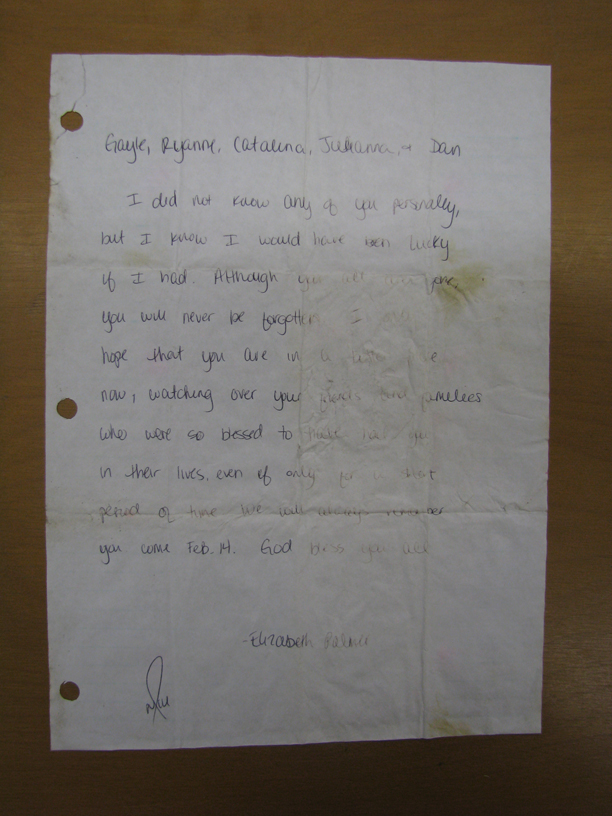 Gayle, Ryanne, Catalina, Julianna, & Dan
I did not know any of you personaly,
but I know I would have been lucky
if I had. Although you
you will never be forgotten. I
hope that you are in a
now, watching over your and
who were so blessed to have
in their lives, even if only for a short
period of time. We will always remember
you come Feb. 14. God bless you all
-Elizabeth